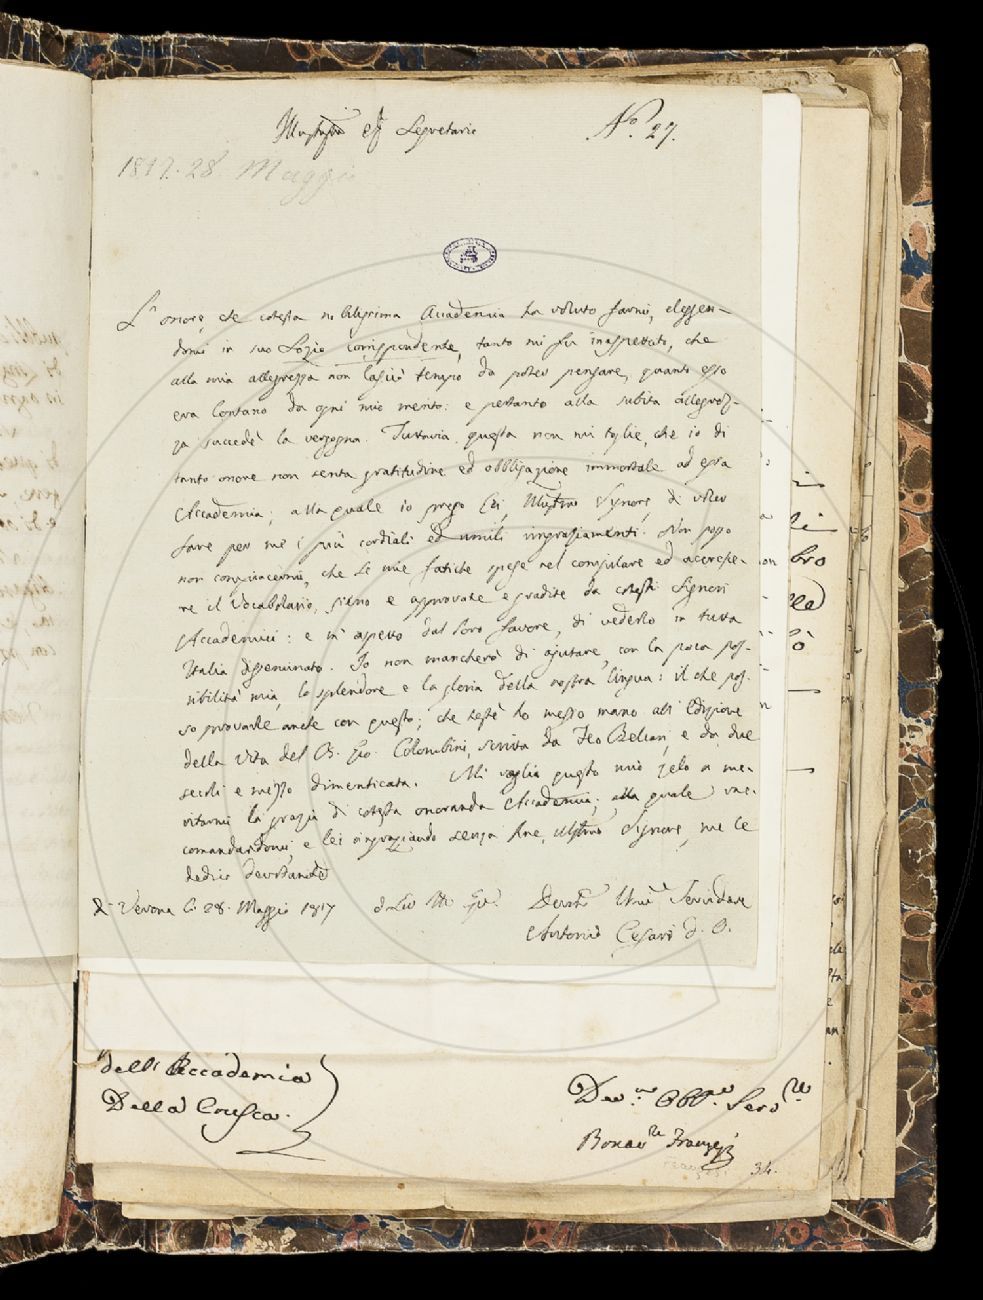 Segretario
N.º 27.
1817. 28 Maggio
L'onore, che cotesta nobilissima Accademia ha voluto farmi, eleggen-
domi in suo Sozio corrispondente, tanto mi fu inaspettato, che
alla mia allegrezza non lasciò tempo da poter pensare, quanto esso
era lontano da ogni mio merito: e pertanto alla subita allegrez-
za succedè la vergogna. Tuttavia questa non mi toglie, che io di
tanto onore non senta gratitudine ed obbligazione immortale ad essa
Accademia; alla quale io prego Lei, Illustrmo Signore, di voler
fare per me i più cordiali ed umili ringraziamenti. Non posso
non compiacermi, che le mie fatiche spese nel compilare ed accresce-
re il Vocabolario, sieno e approvate e gradite da cotesti Signori
Accademici: e m'aspetto dal loro favore, di vederlo in tutta
Italia disseminato. Io non mancherò di ajutare, con la poca pos-
sibilità mia, lo splendore e la gloria della nostra lingua: il che pos-
so provarle anche con questo; che testè ho messo mano all'Edizione
della Vita del B. Gio. Colombini, scritta da Feo Belcari, e da due
secoli e mezzo dimenticata. Mi vaglia questo mio zelo a me-
ritarmi la grazia di cotesta onoranda Accademia; alla quale rac-
comandandomi, e lei ringraziando senza fine, Illstrmo Signore, me le
dedico
Verona li 28. Maggio 1817
Servidore
Antonio Cesari d. O.
dell'Accademia
Della Crusca.
Dev.mo Obb.mo Serv.re
34.